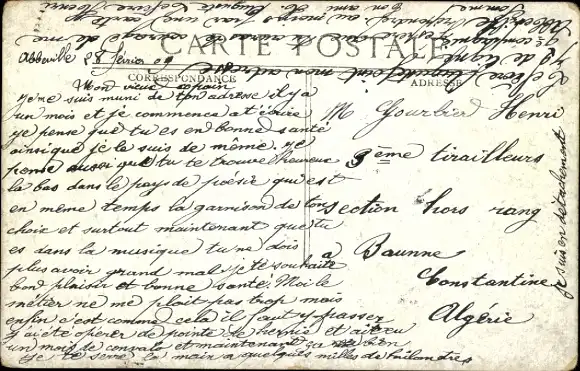 CARTE POSTALE
CORRESPONDANCE
ADRESSE
Abbeville 28 février 09
Mon vieux copain
je me suis muni de ton adresse il y a
un mois et je commence a t'écrire
je pense que tu es en bonne santé
ainsi que je le suis de même. je
pense aussi que tu te trouve heureux
la bas dans le pays de poésie qui est
en même temps la garnison de ton
choix et surtout maintenant que tu
es dans la musique tu ne dois
plus avoir grand mal je te souhaite
bon plaisir et bonne santé. Moi le
métier ne me plait pas trop mais
enfin c'est comme cela il faut y passer
j'ai été opérer de pointe de hernie et ai eu
un mois de convalo et maintenant ça va bien
je te serre la main a quelques milles de
M Gourbier Henri
3ème tirailleurs
section hors rang
a Baunne
Constantine
Algérie
je suis en détachement
mon adresse
de ligne
Abbeville
Somme
au moins par une carte
ton ami
Lefèvre Henri